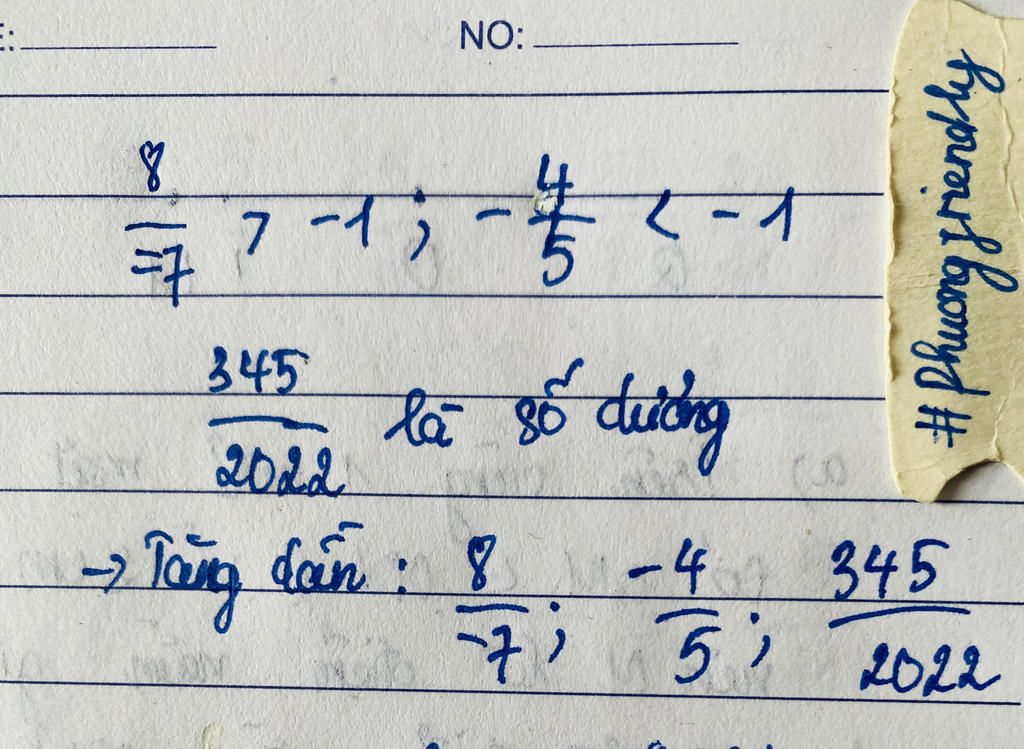 E: NO:
8/-7 > -1 ; -4/5 < -1
345/2022 là số dương
→ Tăng dần : 8/-7 ; -4/5 ; 345/2022
#phuongfriendly